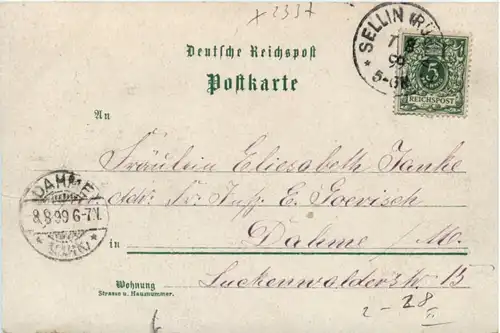 x 2337
Deutsche Reichspost
Postkarte
SELLIN (RÜ
7 8
99
5-6N
5
REICHSPOST
An
Fräulein Eliesabeth Janke
Adr. Fr. Insp. E. Goerisch
DAHME
8.8.99 6-7N.
(MARK)
in Dahme /M.
Wohnung Luckenwalderstr. 13
Strasse u. Hausnummer.
2-28